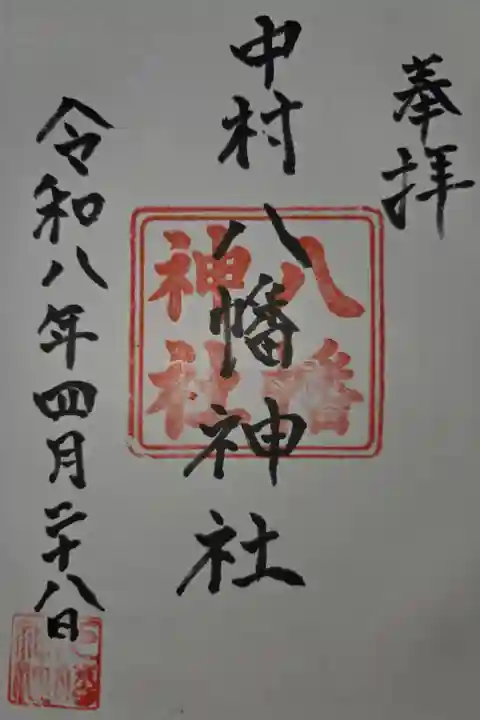 奉拝
中村八幡神社
八幡
神社
令和八年四月二十八日